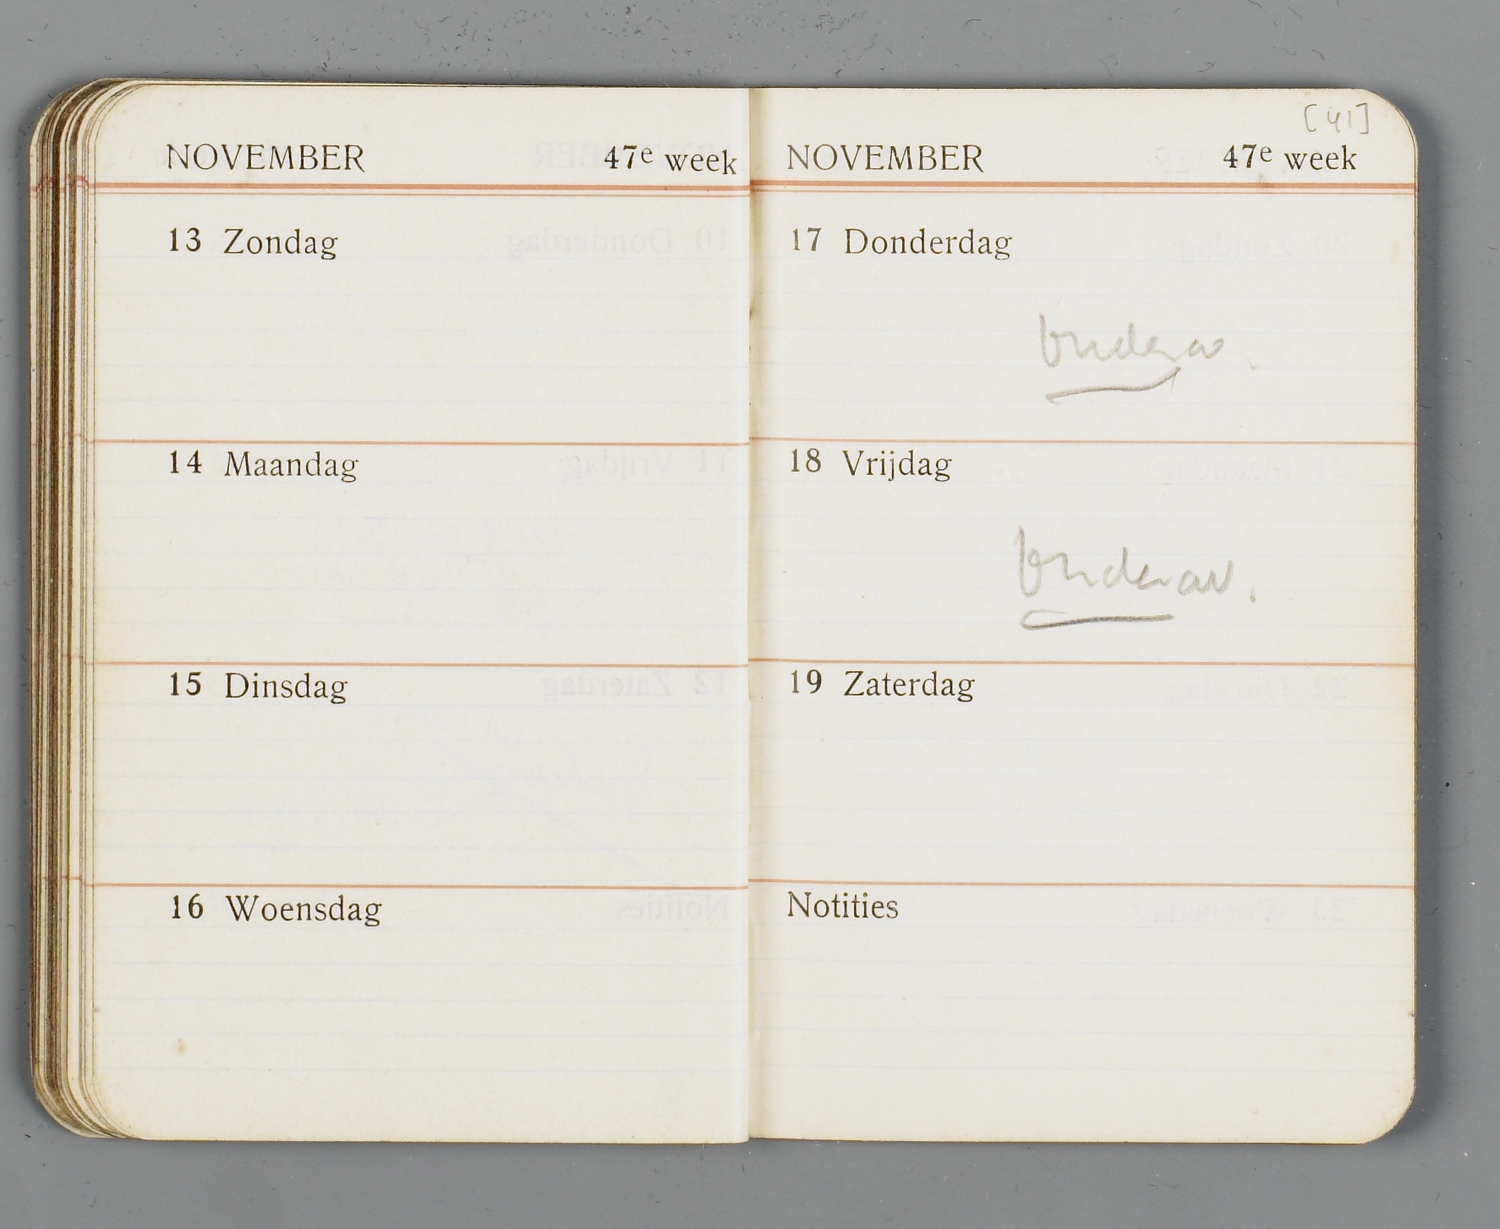 NOVEMBER 47e week
13 Zondag
14 Maandag
15 Dinsdag
16 Woensdag
[41]
NOVEMBER 47e week
17 Donderdag
18 Vrijdag
19 Zaterdag
Notities